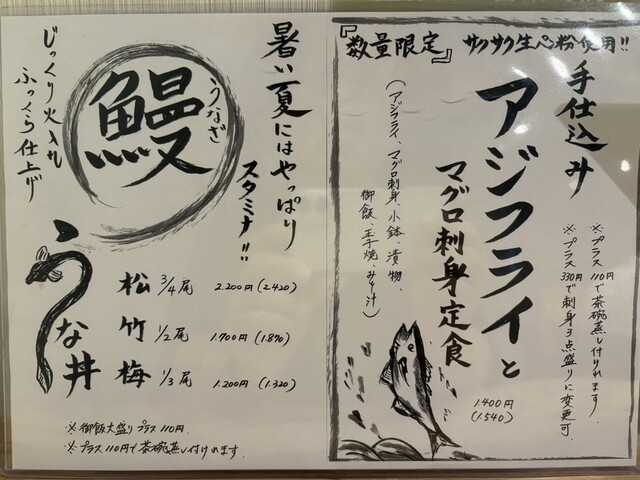 『数量限定』 サクサク生パン粉使用!!
手仕込み
アジフライと
マグロ刺身定食
(アジフライ、マグロ刺身、小鉢、漬物、
御飯、玉子焼、みそ汁)
※プラス110円で茶碗蒸し付けれます。
※プラス330円で刺身3点盛りに変更可。
1.400円
(1.540)
暑い夏にはやっぱり
スタミナ!!
うなぎ
鰻
じっくり火入れ
ふっくら仕上げ
うな丼
松 3/4尾 2.200円(2.420)
竹 1/2尾 1.700円(1.870)
梅 1/3尾 1.200円(1.320)
※御飯大盛りプラス110円.
※プラス110円で茶碗蒸し付けれます.